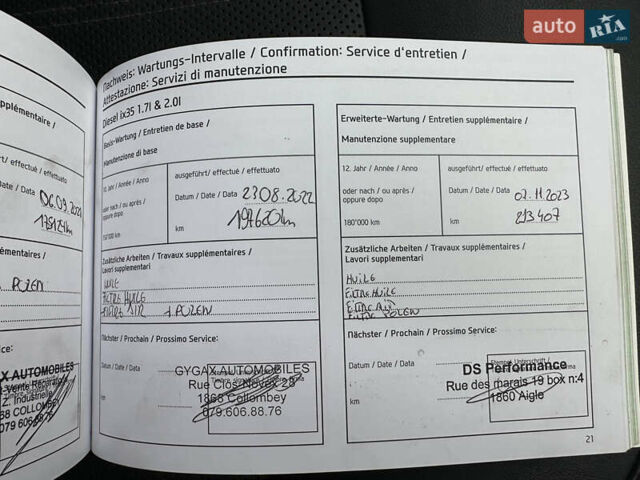 auto RIA.com
Nachweis: Wartungs-Intervalle / Confirmation: Service d'entretien /
Attestazione: Servizi di manutenzione
supplémentaire /
/ effectué / effettuato
/ Date / Data 06.09.2021
émentaires /
POLEN
Service:
AUTOMOBILES
Z. Industrielle
68 COLLOMBEY
079 606.88
Diesel ix35 1.7l & 2.0l
Basis-Wartung / Entretien de base /
Manutenzione di base
10. Jahr / Année / Anno
oder nach / ou après /
oppure dopo
150'000 km
ausgeführt / effectué / effettuato
Datum / Date / Data 23.08.2022
km 197600km
Zusätzliche Arbeiten / Travaux supplémentaires /
Lavori supplementari
HUILE
FILTRE HUILE
FILTRE AIR + POLEN
Nächster / Prochain / Prossimo Service:
Datum / Date / Data
km
GYGAX AUTOMOBILES
Rue Clos-Novex 23
1868 Collombey
079.606.88.76
Erweiterte-Wartung / Entretien supplémentaire /
Manutenzione supplementare
12. Jahr / Année / Anno
oder nach / ou après /
oppure dopo
180'000 km
ausgeführt / effectué / effettuato
Datum / Date / Data 02.11.2023
km 213407
Zusätzliche Arbeiten / Travaux supplémentaires /
Lavori supplementari
HUILE
FILTRE HUILE
FILTRE AIR
FILTRE POLEN
Nächster / Prochain / Prossimo Service:
Datum / Date / Data
km
DS Performance
Rue des marais 19 box n:4
1860 Aigle
21